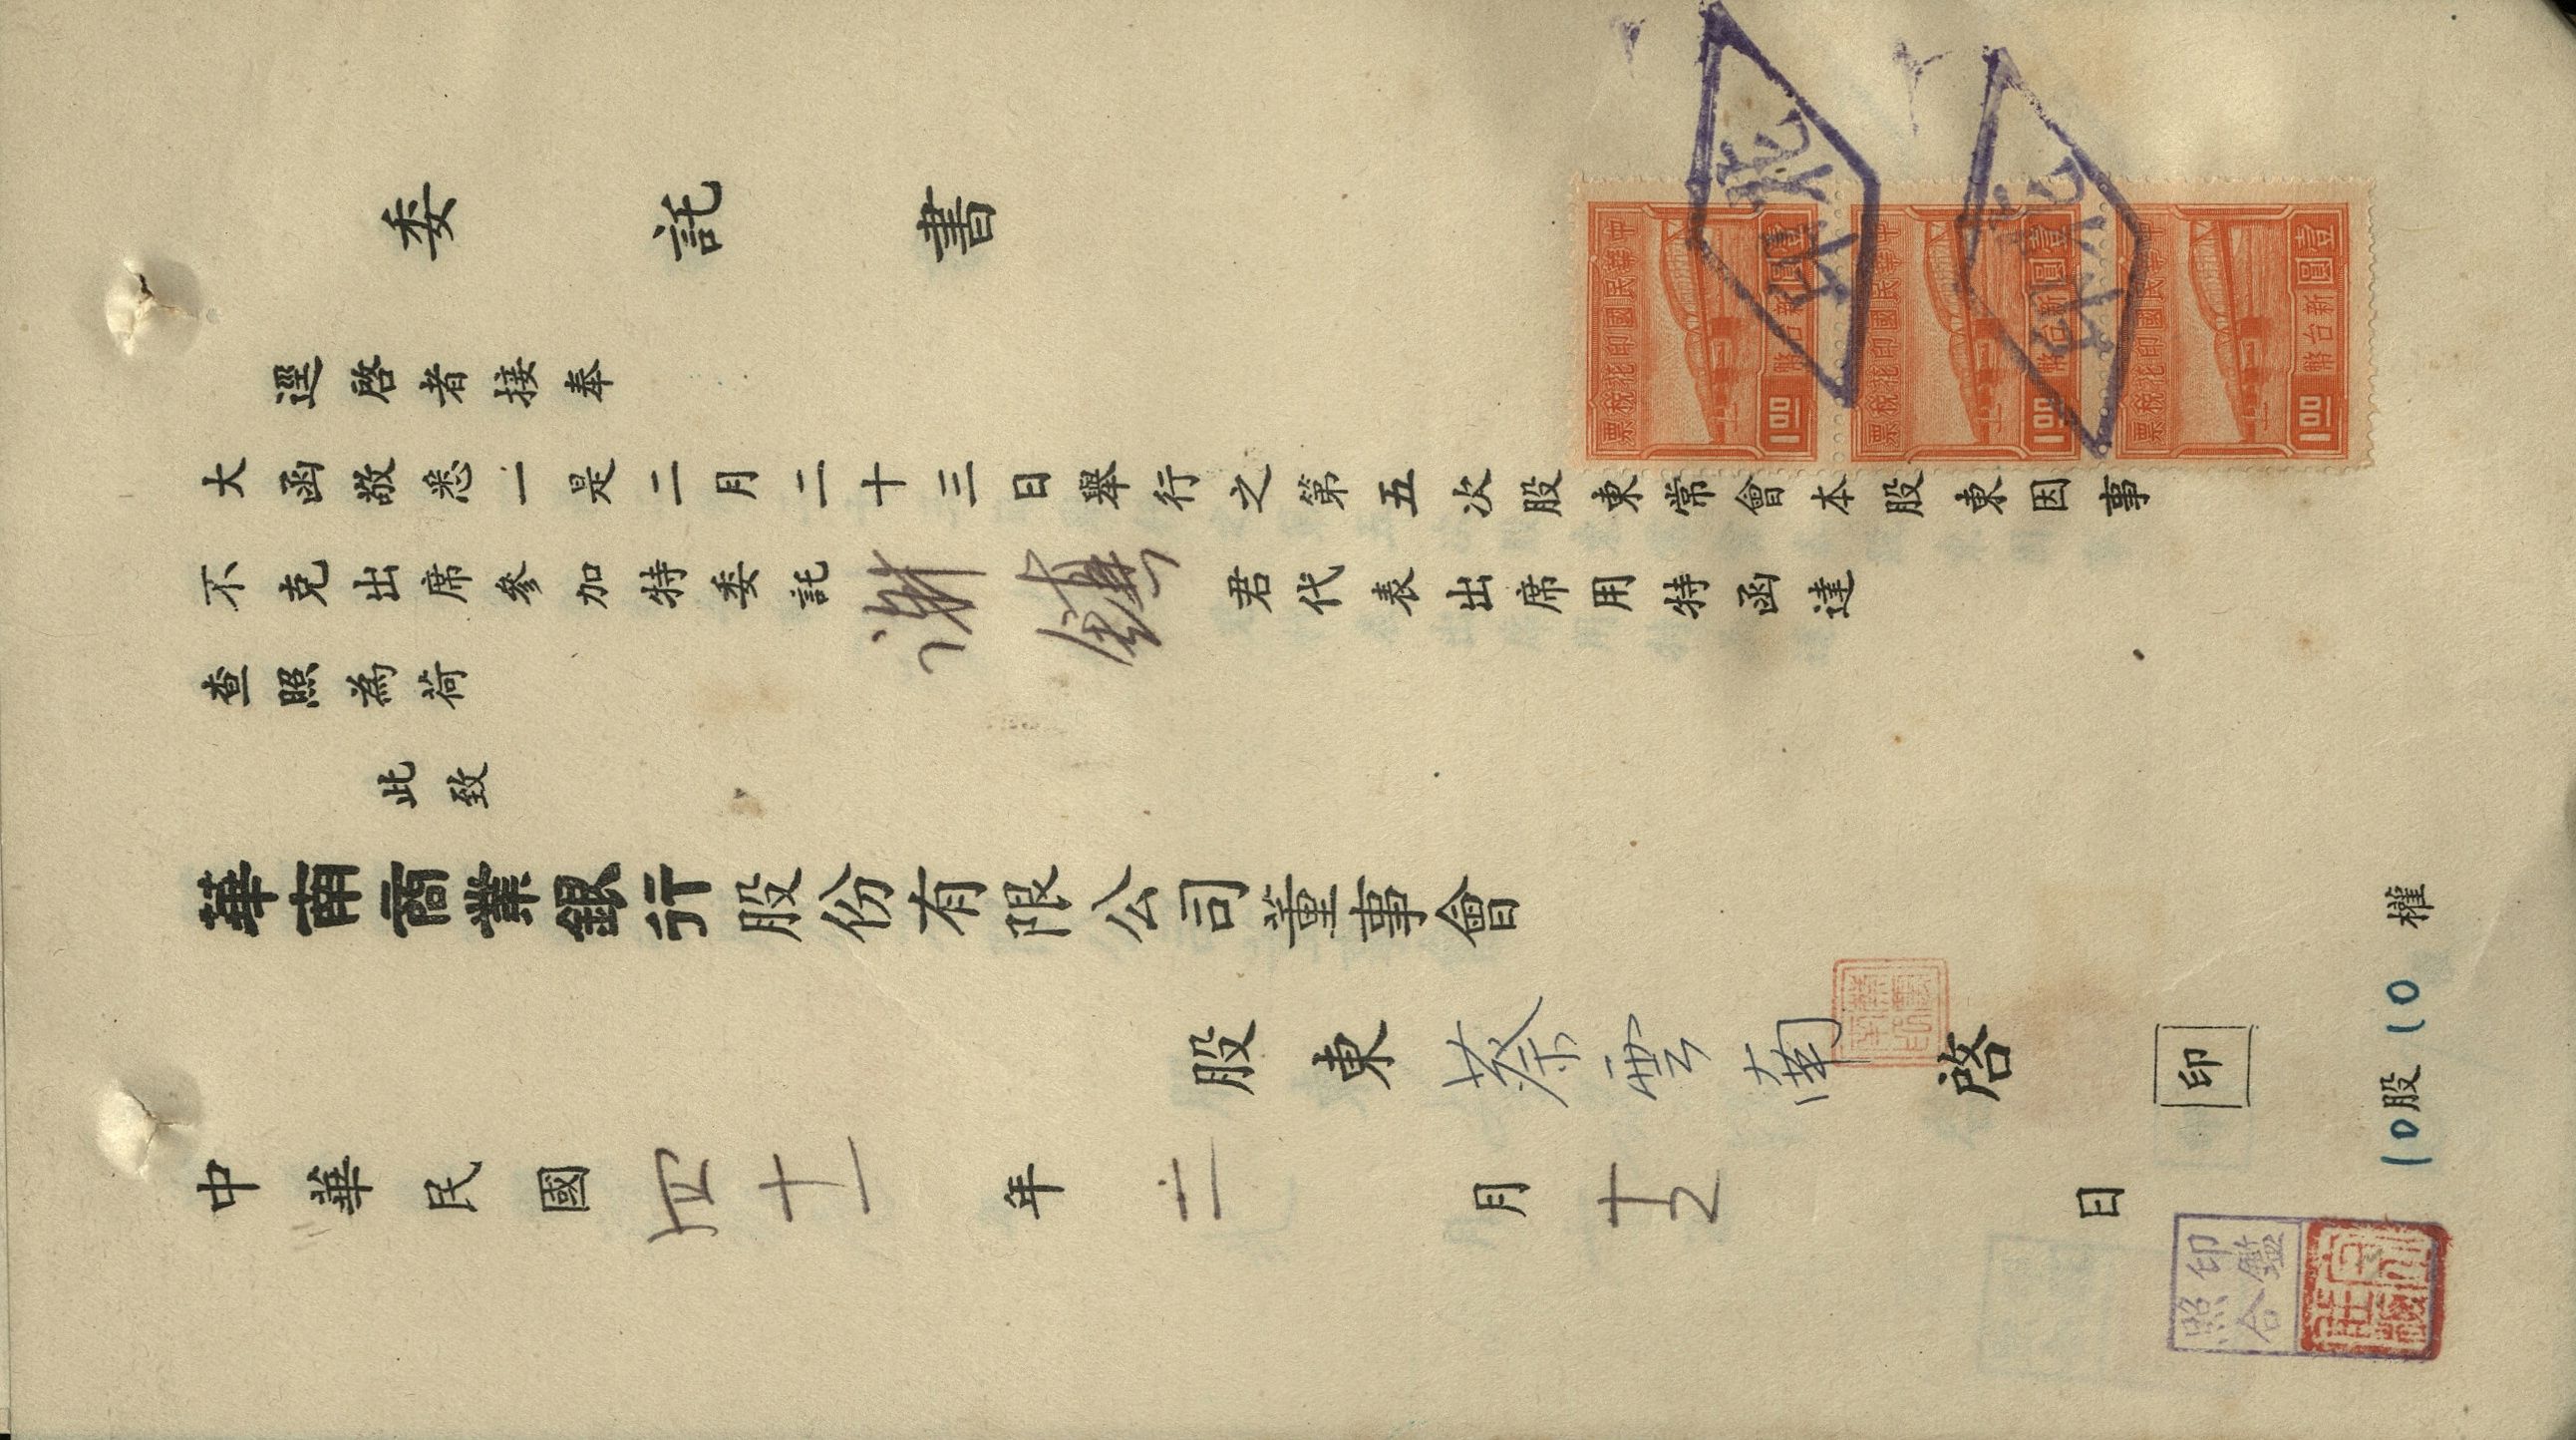 委託書
逕啓者接奉
大函敬悉一是二月二十三日舉行之第五次股東常會本股東因事
不克出席參加特委託謝鑄君代表出席用特函達
查照為荷
此致
華南商業銀行股份有限公司董事會
股東蔡雲南啓
印
中華民國四十一年二月十五日
10股10權
中華民國印花稅票
新台幣壹圓
1.00
中華民國印花稅票
新台幣壹圓
1.00
中華民國印花稅票
新台幣壹圓
1.00
印鑑
照合